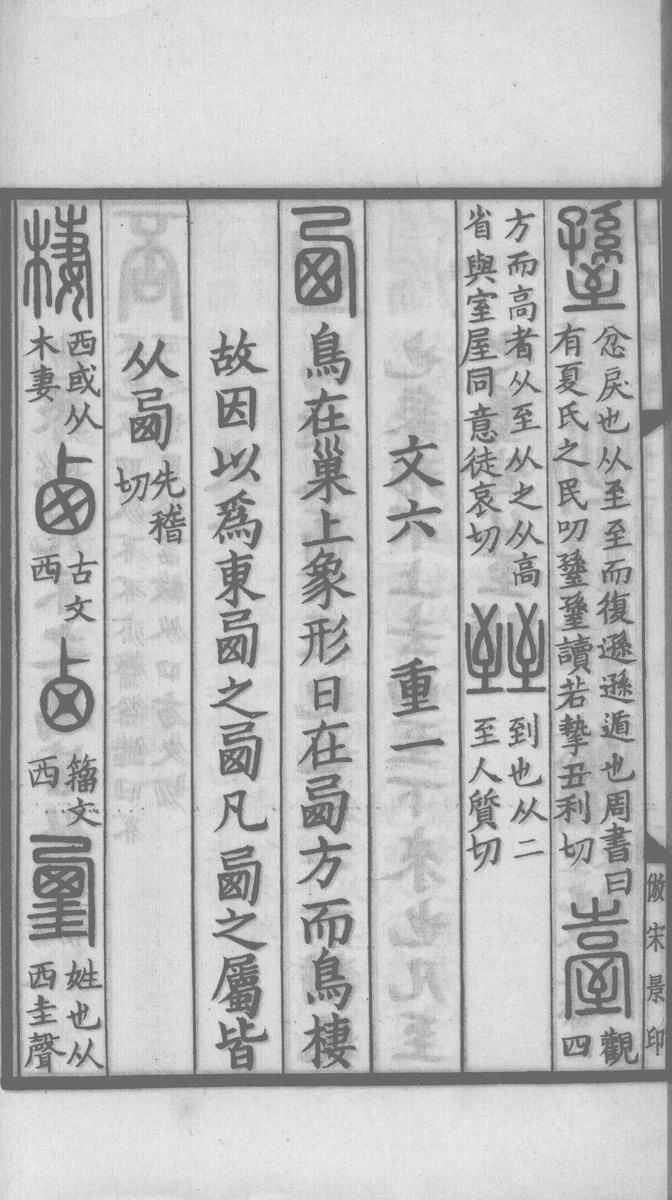 倣宋景印
𦥎 忿戾也从至至而復遜遜遁也周書曰
有夏氏之民叨𦥎𦥎讀若摯丑利切
臺 觀四
方而高者从至从之从高
省與室屋同意徒哀切
臸 到也从二
至人質切
文六 重一
西 鳥在巢上象形日在西方而鳥棲
故因以爲東西之西凡西之屬皆
从西 先稽切
棲 西或从木妻
卥 古文西
卤 籒文西
姓也从西圭聲